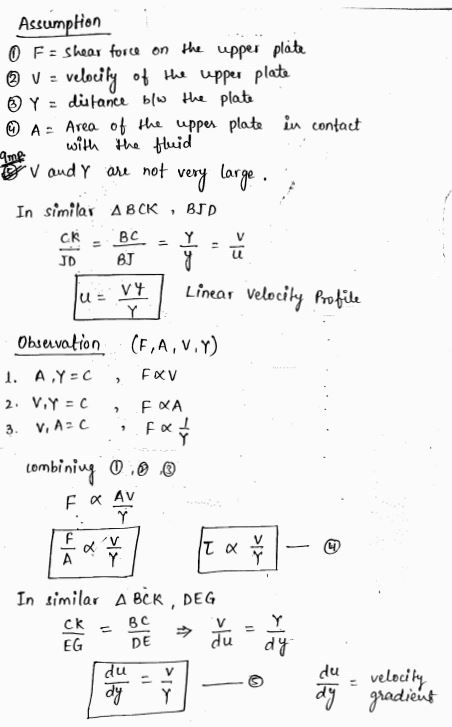 Assumption
① F = shear force on the upper plate
② V = velocity of the upper plate
③ Y = distance b/w the plate
④ A = Area of the upper plate in contact
with the fluid
Imp
⑤ V and Y are not very large.
In similar △ BCK , BJD
CK/JD = BC/BJ = Y/y = V/u
u = Vy/Y Linear Velocity Profile
Observation (F, A, V, Y)
1. A, Y = C , F ∝ V
2. V, Y = C , F ∝ A
3. V, A = C , F ∝ 1/Y
combining ①, ②, ③
F ∝ AV/Y
F/A ∝ V/Y τ ∝ V/Y — ④
In similar △ BCK, DEG
CK/EG = BC/DE ⇒ V/du = Y/dy
du/dy = V/Y — ⑤ du/dy = velocity gradient